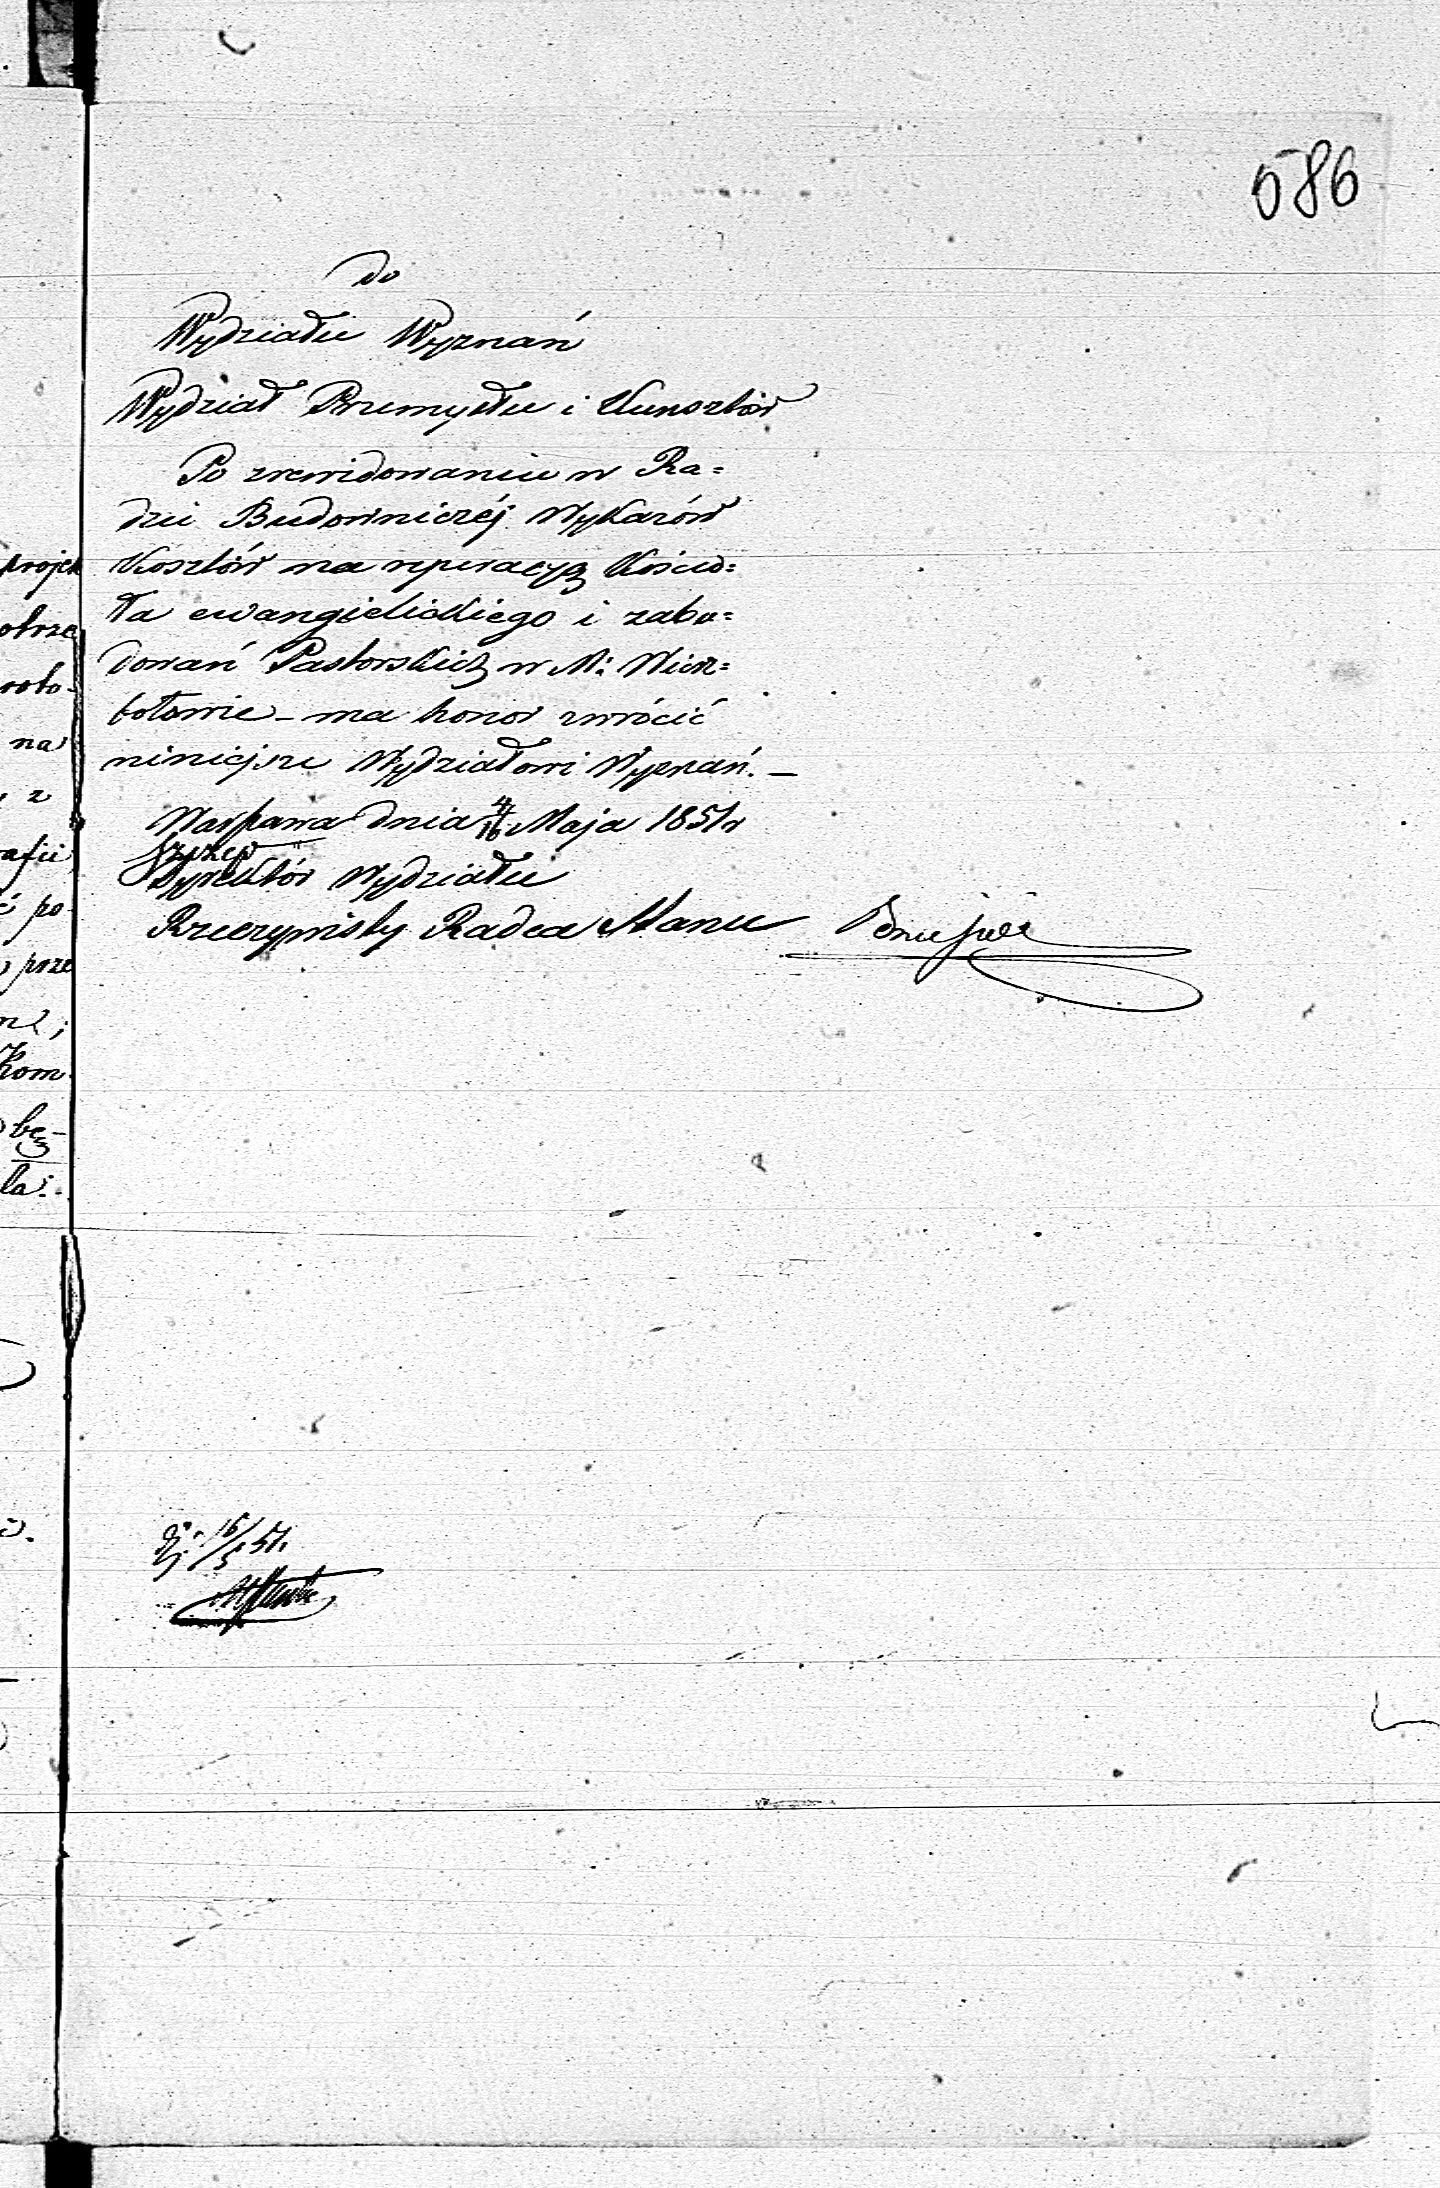 586
Do
Wydziału Wyznań
Wydział Przemysłu i Kunsztów
Po zrewidowaniu w Ra=
dzie Budowniczéj Wykazów
Kosztów na reperacyą Kościo=
ła ewangielickiego i zabu=
dowań Pastorskich w M: Wierz=
bołowie – ma honor zwrócić
niniejsze Wydziałowi Wyznań. –
Warszawa dnia 4/16 Maja 1851 r
Dyrektór Wydziału
Rzeczywisty Radca Stanu
16/5 51.
projek
obrze
robo-
na
z
afii
ć po-
prze
Kom
bę-
la: